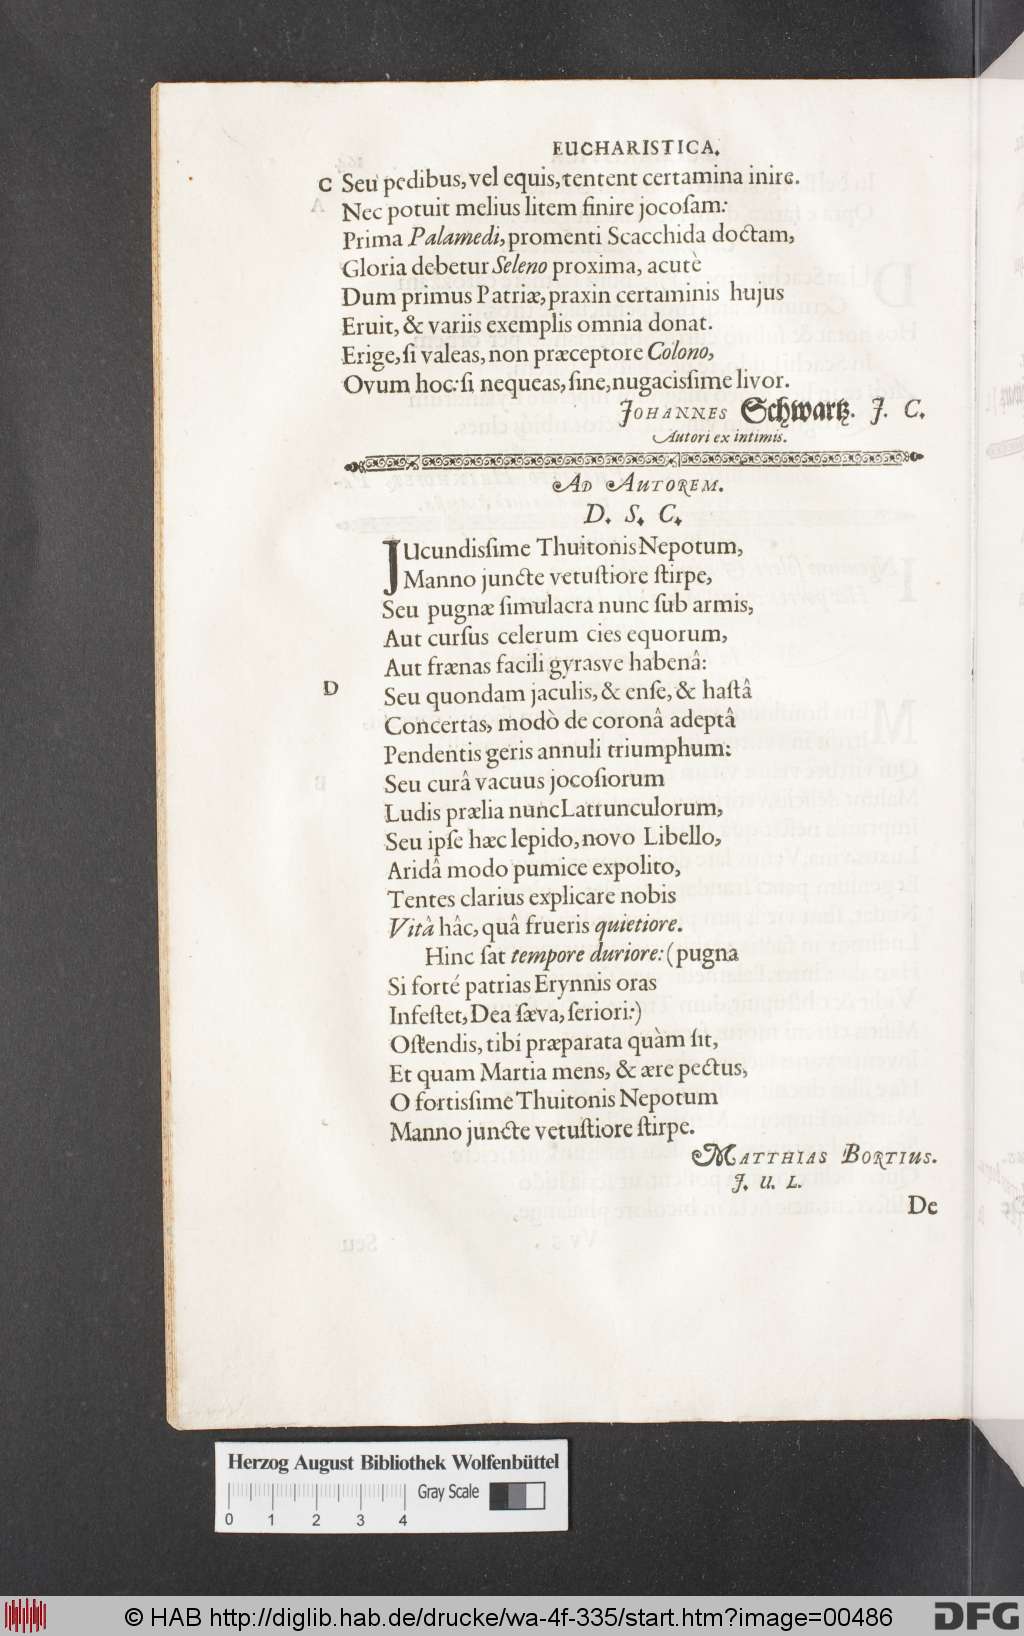 EUCHARISTICA.
C Seu pedibus, vel equis, tentent certamina inire.
Nec potuit melius litem finire jocoſam:
Prima Palamedi, promenti Scacchida doctam,
Gloria debetur Seleno proxima, acutè
Dum primus Patriæ, praxin certaminis hujus
Eruit, & variis exemplis omnia donat.
Erige, ſi valeas, non præceptore Colono,
Ovum hoc: ſi nequeas, ſine, nugaciſſime livor.
JOHANNES Schwartz. J. C.
Autori ex intimis.
AD AUTOREM.
D. S. C.
JUcundiſſime Thuitonis Nepotum,
Manno juncte vetuſtiore ſtirpe,
Seu pugnæ ſimulacra nunc ſub armis,
Aut curſus celerum cies equorum,
Aut frænas facili gyrasve habenâ:
D Seu quondam jaculis, & enſe, & haſtâ
Concertas, modò de coronâ adeptâ
Pendentis geris annuli triumphum:
Seu curâ vacuus jocoſiorum
Ludis prælia nunc Latrunculorum,
Seu ipſe hæc lepido, novo Libello,
Aridâ modo pumice expolito,
Tentes clarius explicare nobis
Vitâ hâc, quâ frueris quietiore.
Hinc ſat tempore duriore: (pugna
Si forté patrias Erynnis oras
Infeſtet, Dea ſæva, ſeriori:)
Oſtendis, tibi præparata quàm ſit,
Et quam Martia mens, & ære pectus,
O fortiſſime Thuitonis Nepotum
Manno juncte vetuſtiore ſtirpe.
MATTHIAS BORTIUS.
J. U. L.
De
Herzog August Bibliothek Wolfenbüttel
Gray Scale
0 1 2 3 4
© HAB http://diglib.hab.de/drucke/wa-4f-335/start.htm?image=00486
DFG